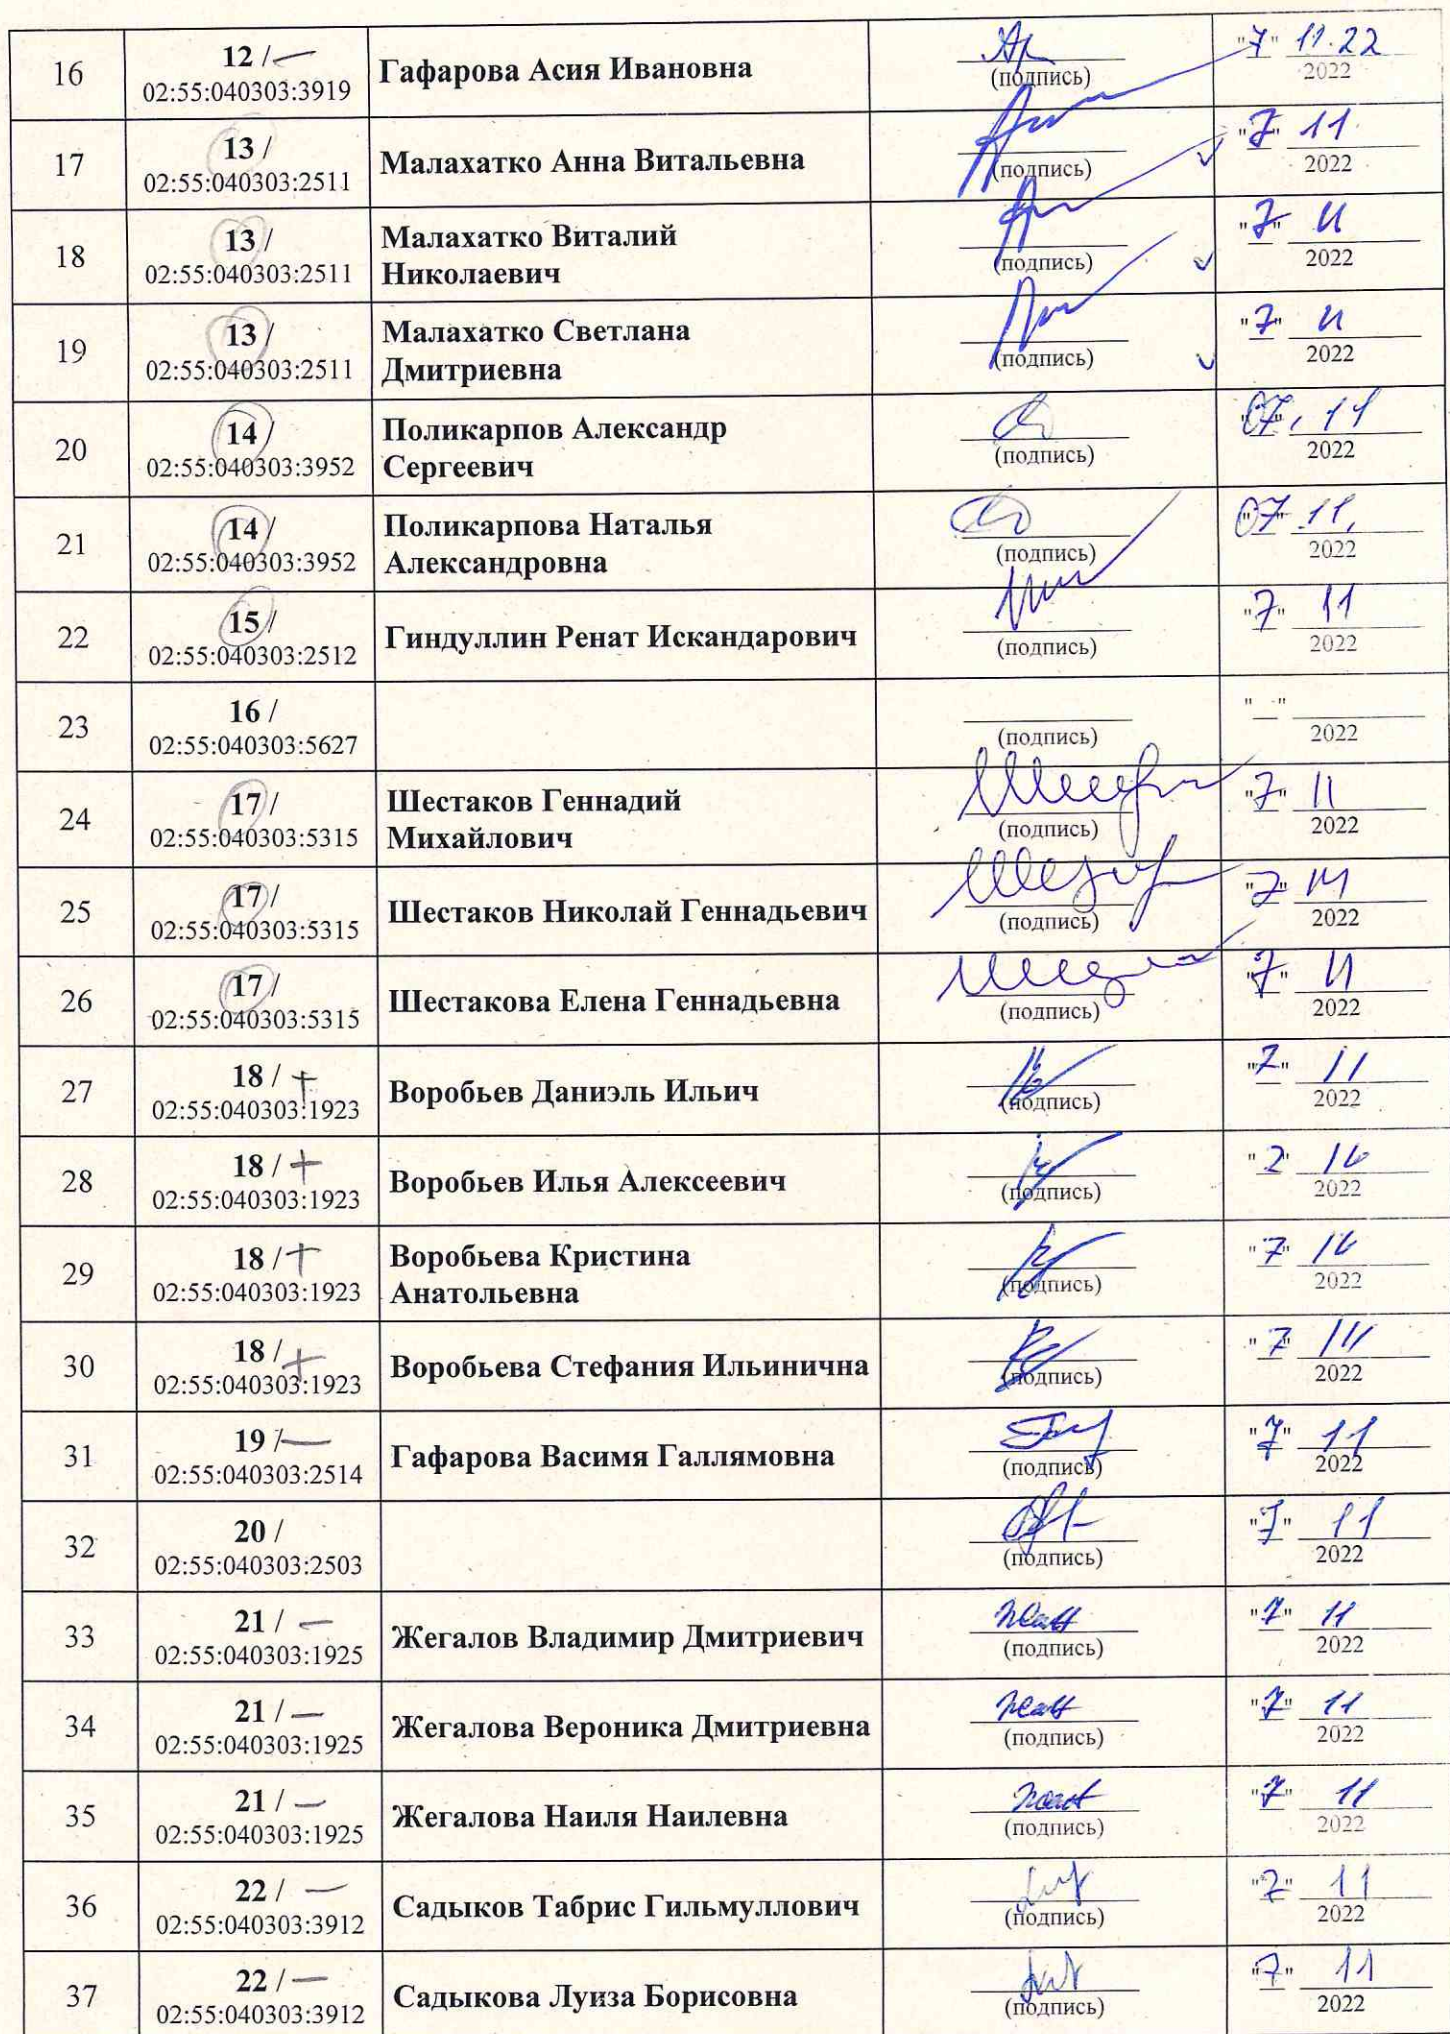 16
12 / —
02:55:040303:3919
Гафарова Асия Ивановна
(подпись)
"7" 11.22
2022
17
13 /
02:55:040303:2511
Малахатко Анна Витальевна
(подпись)
"7" 11.
2022
18
13 /
02:55:040303:2511
Малахатко Виталий
Николаевич
(подпись)
"7" 11
2022
19
13 /
02:55:040303:2511
Малахатко Светлана
Дмитриевна
(подпись)
"7" 11
2022
20
14 /
02:55:040303:3952
Поликарпов Александр
Сергеевич
(подпись)
"07, 11
2022
21
14 /
02:55:040303:3952
Поликарпова Наталья
Александровна
(подпись)
"07" 11,
2022
22
15 /
02:55:040303:2512
Гиндуллин Ренат Искандарович
(подпись)
"7" 11
2022
23
16 /
02:55:040303:5627
(подпись)
"__"
2022
24
17 /
02:55:040303:5315
Шестаков Геннадий
Михайлович
(подпись)
"7" 11
2022
25
17 /
02:55:040303:5315
Шестаков Николай Геннадьевич
(подпись)
"7" 11
2022
26
17 /
02:55:040303:5315
Шестакова Елена Геннадьевна
(подпись)
"7" 11
2022
27
18 / +
02:55:040303:1923
Воробьев Даниэль Ильич
(подпись)
"7" 11
2022
28
18 / +
02:55:040303:1923
Воробьев Илья Алексеевич
(подпись)
2022
29
18 / +
02:55:040303:1923
Воробьева Кристина
Анатольевна
(подпись)
"7"
2022
30
18 / +
02:55:040303:1923
Воробьева Стефания Ильинична
(подпись)
"7"
2022
31
19 / —
02:55:040303:2514
Гафарова Васимя Галлямовна
(подпись)
"7" 11
2022
32
20 /
02:55:040303:2503
(подпись)
"7" 11
2022
33
21 / —
02:55:040303:1925
Жегалов Владимир Дмитриевич
(подпись)
"7" 11
2022
34
21 / —
02:55:040303:1925
Жегалова Вероника Дмитриевна
(подпись)
"7" 11
2022
35
21 / —
02:55:040303:1925
Жегалова Наиля Наилевна
(подпись)
"7" 11
2022
36
22 / —
02:55:040303:3912
Садыков Табрис Гильмуллович
(подпись)
"7" 11
2022
37
22 / —
02:55:040303:3912
Садыкова Луиза Борисовна
(подпись)
"7" 11
2022